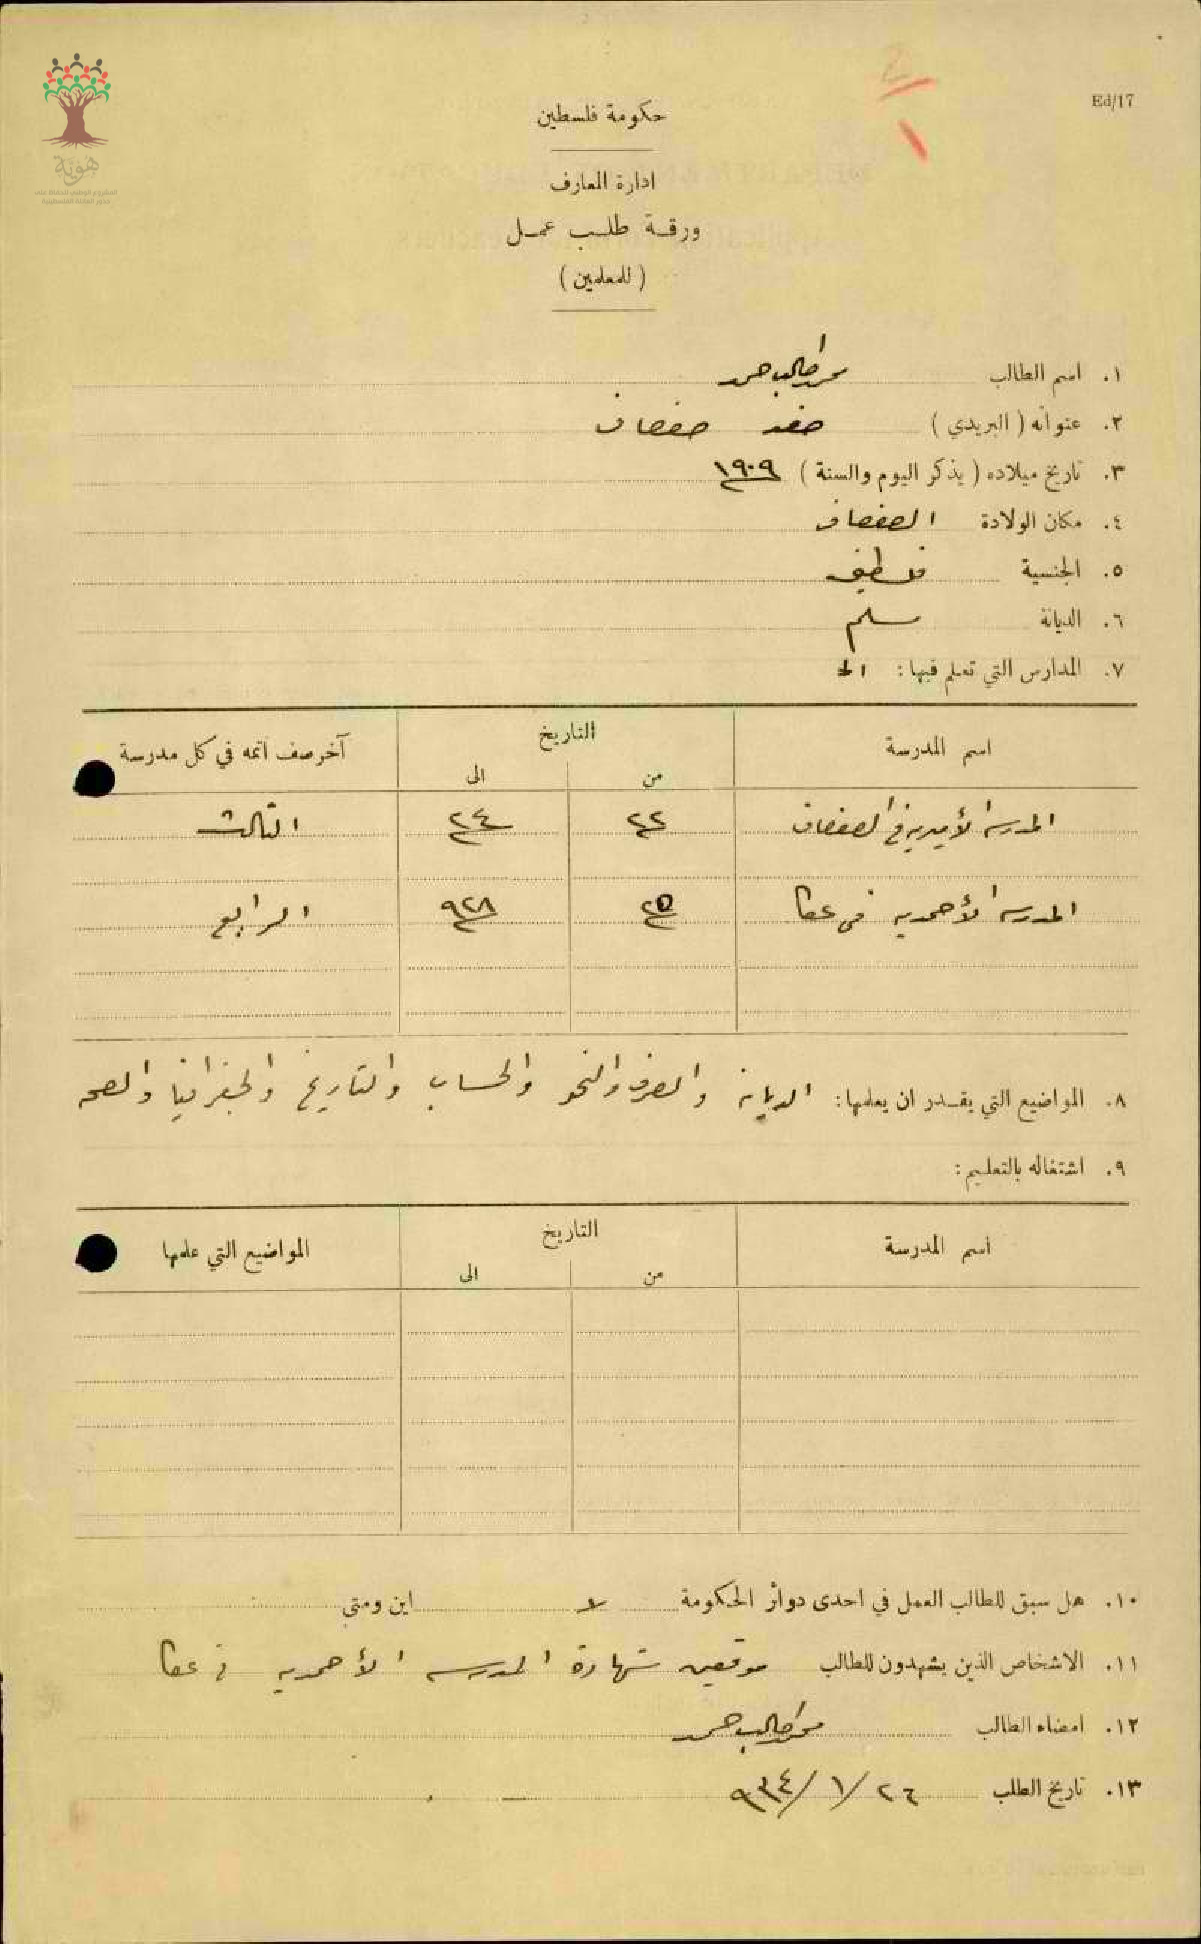 Ed/17
هوية
المشروع الوطني للحفاظ على
جذور العائلة الفلسطينية
حكومة فلسطين
ادارة المعارف
ورقة طلب عمل
(للمعلمين)
١. اسم الطالب محمد طالب حمد
٢. عنوانه (البريدي) صفد صفصاف
٣. تاريخ ميلاده (يذكر اليوم والسنة) ١٩٠٩
٤. مكان الولادة الصفصاف
٥. الجنسية فلسطيني
٦. الديانة مسلم
٧. المدارس التي تعلم فيها:
اسم المدرسة التاريخ آخر صف أتمه في كل مدرسة
من الى
المدرسة الأميرية في الصفصاف ٢٢ ٢٤ الثالث
المدرسة الأحمدية في عكا ٢٥ ٩٢٨ الرابع
٨. المواضيع التي يقدر ان يعلمها: الديانة والصرف والنحو والحساب والتاريخ والجغرافيا والصحة
٩. اشتغاله بالتعليم:
اسم المدرسة التاريخ المواضيع التي علمها
من الى
١٠. هل سبق للطالب العمل في احدى دوائر الحكومة لا اين ومتى
١١. الاشخاص الذين يشهدون للطالب موقعين شهادة المدرسة الأحمدية في عكا
١٢. امضاء الطالب محمد طالب حمد
١٣. تاريخ الطلب ٢٦/١/٩٣٤